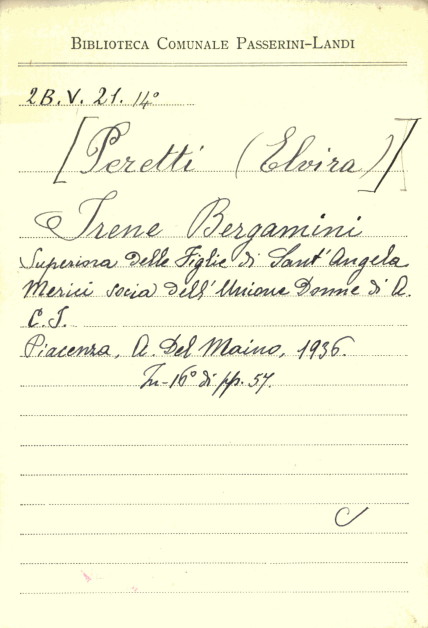 BIBLIOTECA COMUNALE PASSERINI-LANDI
2B.V. 21. 14°
[Peretti (Elvira)]
Irene Bergamini
Superiora delle Figlie di Sant'Angela
Merici socia dell'Unione Donne di A.
C. I.
Piacenza, A. Del Maino, 1936.
In-16° di pp. 57.
C